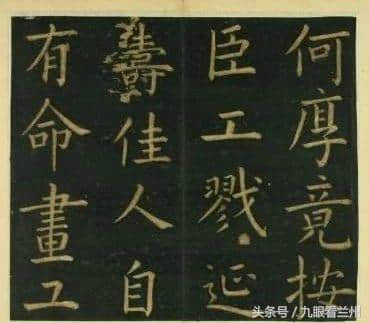 何厚竟按
臣工戮延
壽佳人自
有命畫工
头条号/九眼看兰州